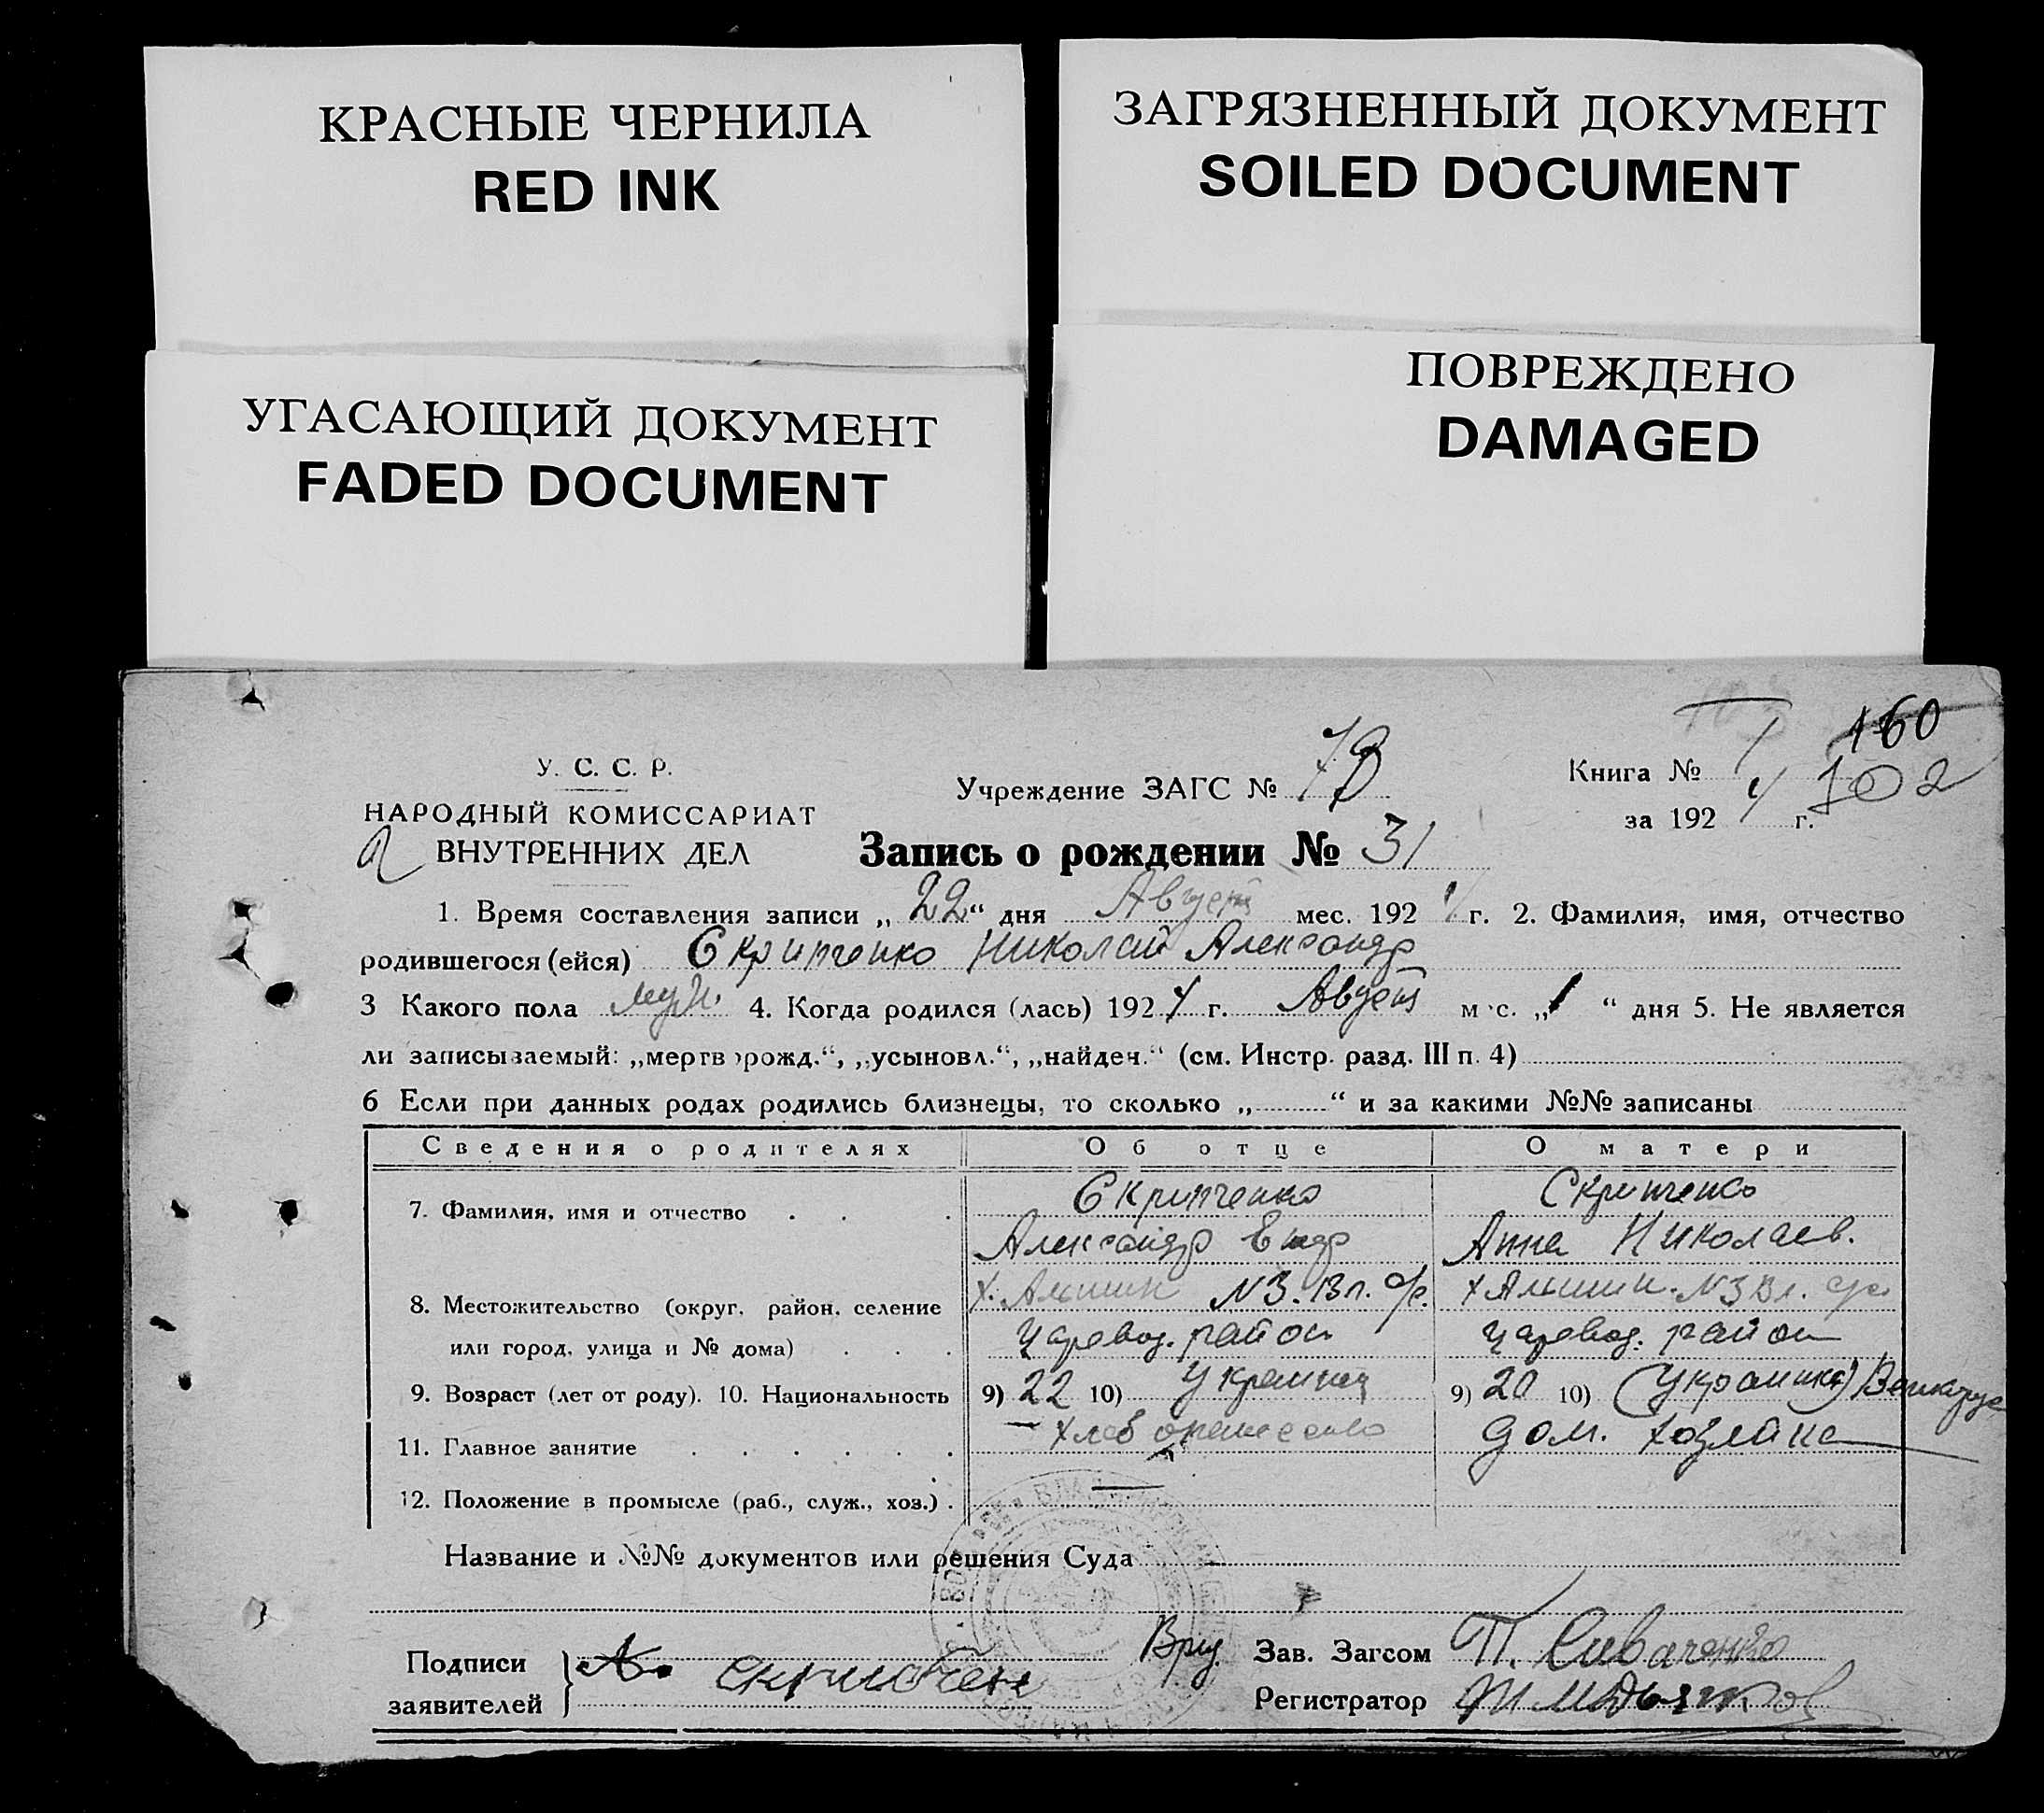 КРАСНЫЕ ЧЕРНИЛА
RED INK
ЗАГРЯЗНЕННЫЙ ДОКУМЕНТ
SOILED DOCUMENT
УГАСАЮЩИЙ ДОКУМЕНТ
FADED DOCUMENT
ПОВРЕЖДЕНО
DAMAGED
160
102
У. С. С. Р.
НАРОДНЫЙ КОМИССАРИАТ
ВНУТРЕННИХ ДЕЛ
Учреждение ЗАГС №
Книга №
за 192 4 г.
Запись о рождении № 31
1. Время составления записи „22“ дня Август мес. 192 4 г. 2. Фамилия, имя, отчество
родившегося (ейся) Скрипченко Николай Александр
3 Какого пола муж. 4. Когда родился (лась) 192 4 г. Август мес. „1“ дня 5. Не является
ли записываемый: „мертворожд.“, „усыновл.“, „найден.“ (см. Инстр. разд. III п. 4)
6 Если при данных родах родились близнецы, то сколько „ “ и за какими №№ записаны
Сведения о родителях Об отце О матери
7. Фамилия, имя и отчество Скрипченко Скрипченко
Александр Анна Николаев.
8. Местожительство (округ, район, селение х. N3. Вл. с/с. х N3 Вл. с/с
или город, улица и № дома) Царевод. район Царевод. район
9. Возраст (лет от роду). 10. Национальность 9) 22 10) Украинец 9) 20 10) (Украинка)
11. Главное занятие Хлебопашество дом. хозяйка
12. Положение в промысле (раб., служ., хоз.)
Название и №№ документов или решения Суда
Подписи
заявителей А.
Врид Зав. Загсом П. Сиваченко
Регистратор